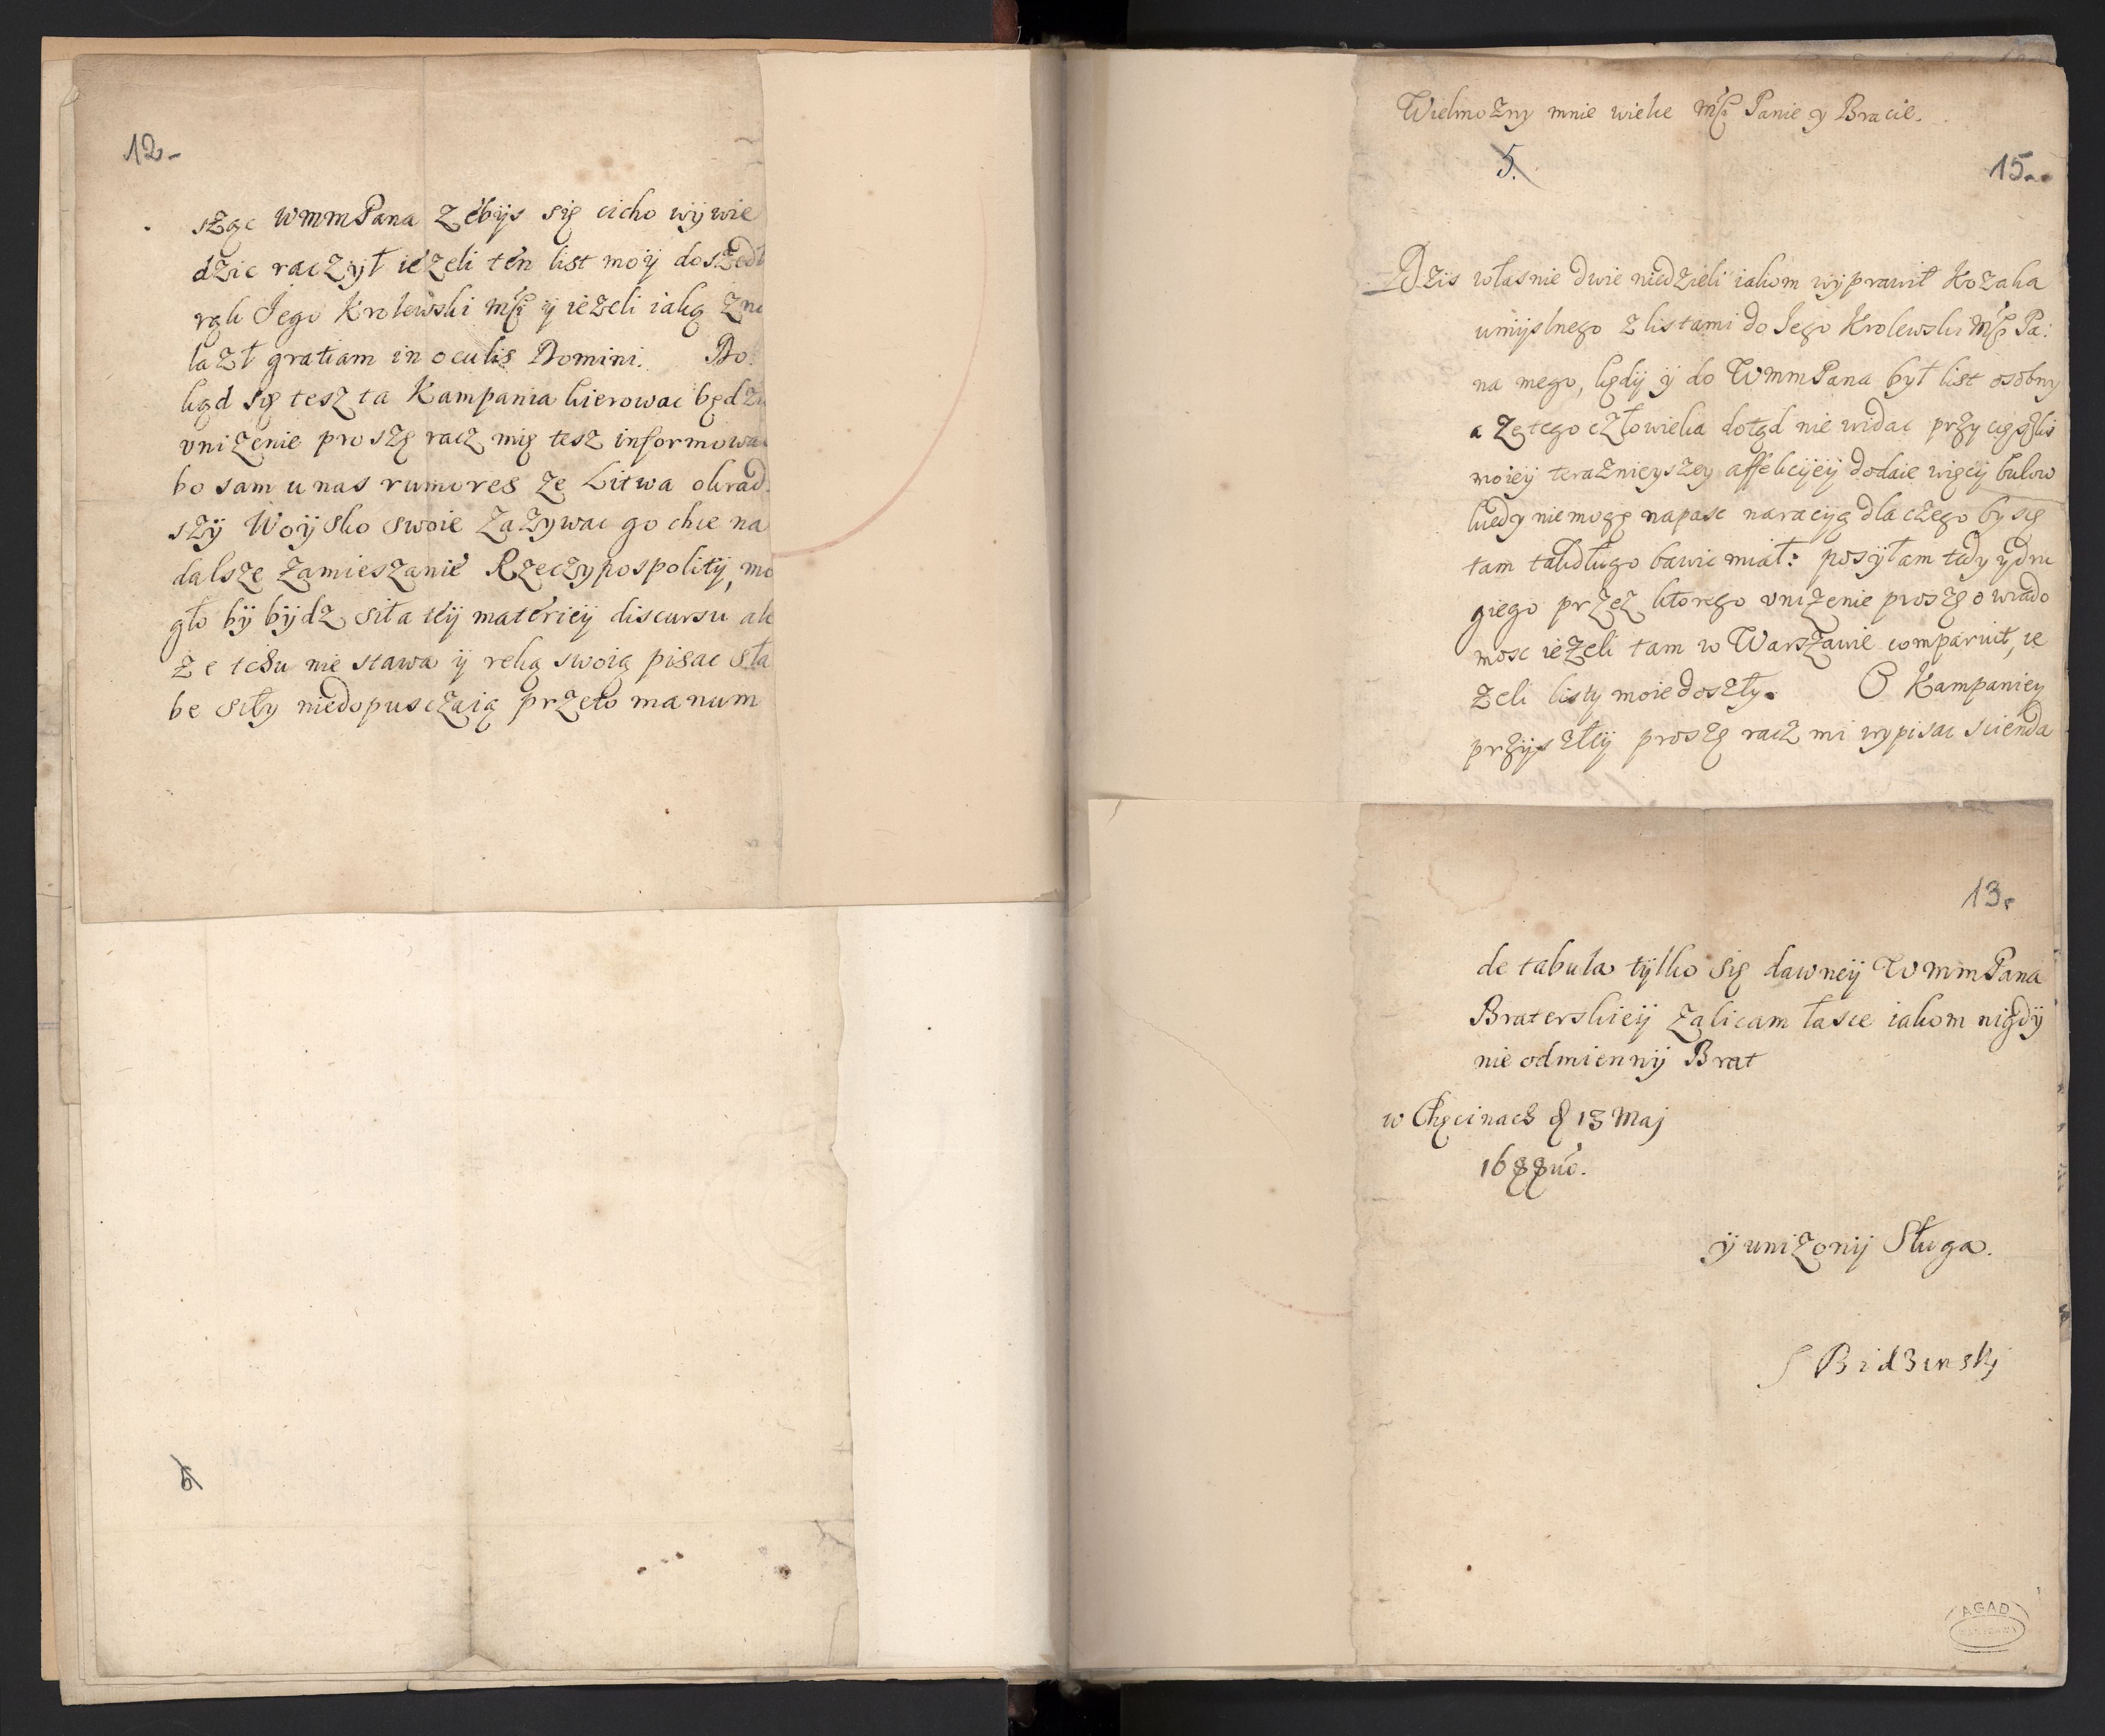 12.
sząc WMMPana zebÿs się cicho wÿwie
dzic raczÿł ieżeli ten list moÿ doszedł
rąk Jego Krolewski Mści ÿ ieżeli iaką zna
lazł gratiam in oculis Domini. Do
kąd się tesz ta Kampania kierowac będzie
unizenie proszę racz mię tesz informowac
bo sam u nas rumores ze Litwa okrad
szÿ Woÿsko swoie zazywac go chce na
dalsze zamieszanie Rzeczypospolitÿ, mo
gło bÿ bÿdz siła teÿ materieÿ discursu ale
ze tchu nie stawa ÿ ręką swoią pisac sła
be siły niedopusczaią przeto manum
6
Wielmozny mnie wielce Mści Panie y Bracie.
5.
15.
Dzis własnie dwie niedzieli iakom wyprawił Kozaka
umÿslnego z listami do Jego Krolewski Mści Pa:
na mego, kędÿ ÿ do WMMPana był list osobny
a ze tego człowieka dotąd nie widac przy cięszkis
moieÿ teraznieyszey affekcÿeÿ dodaie więceÿ bulow
kiedy nie mogę napasc na racyą dla czego by się
tam takdługo bawic miał: posÿłam tedy ÿ dru
giego przez ktorego unizenie proszę o wiado
mosc iezeli tam w Warszawie comparuit, ie
zeli listy moie doszły. O Kampaniey
przÿszłeÿ proszę racz mi wypisac scienda
13.
de tabula tÿlko się dawneÿ WMMPana
Braterskieÿ zalicam łasce iakom nigdÿ
nie odmiennÿ Brat
w Chęcinach d 13 Maj
1688vo.
ÿ unizonÿ Sługa.
S Bidzinskj
AGAD
WARSZAWA